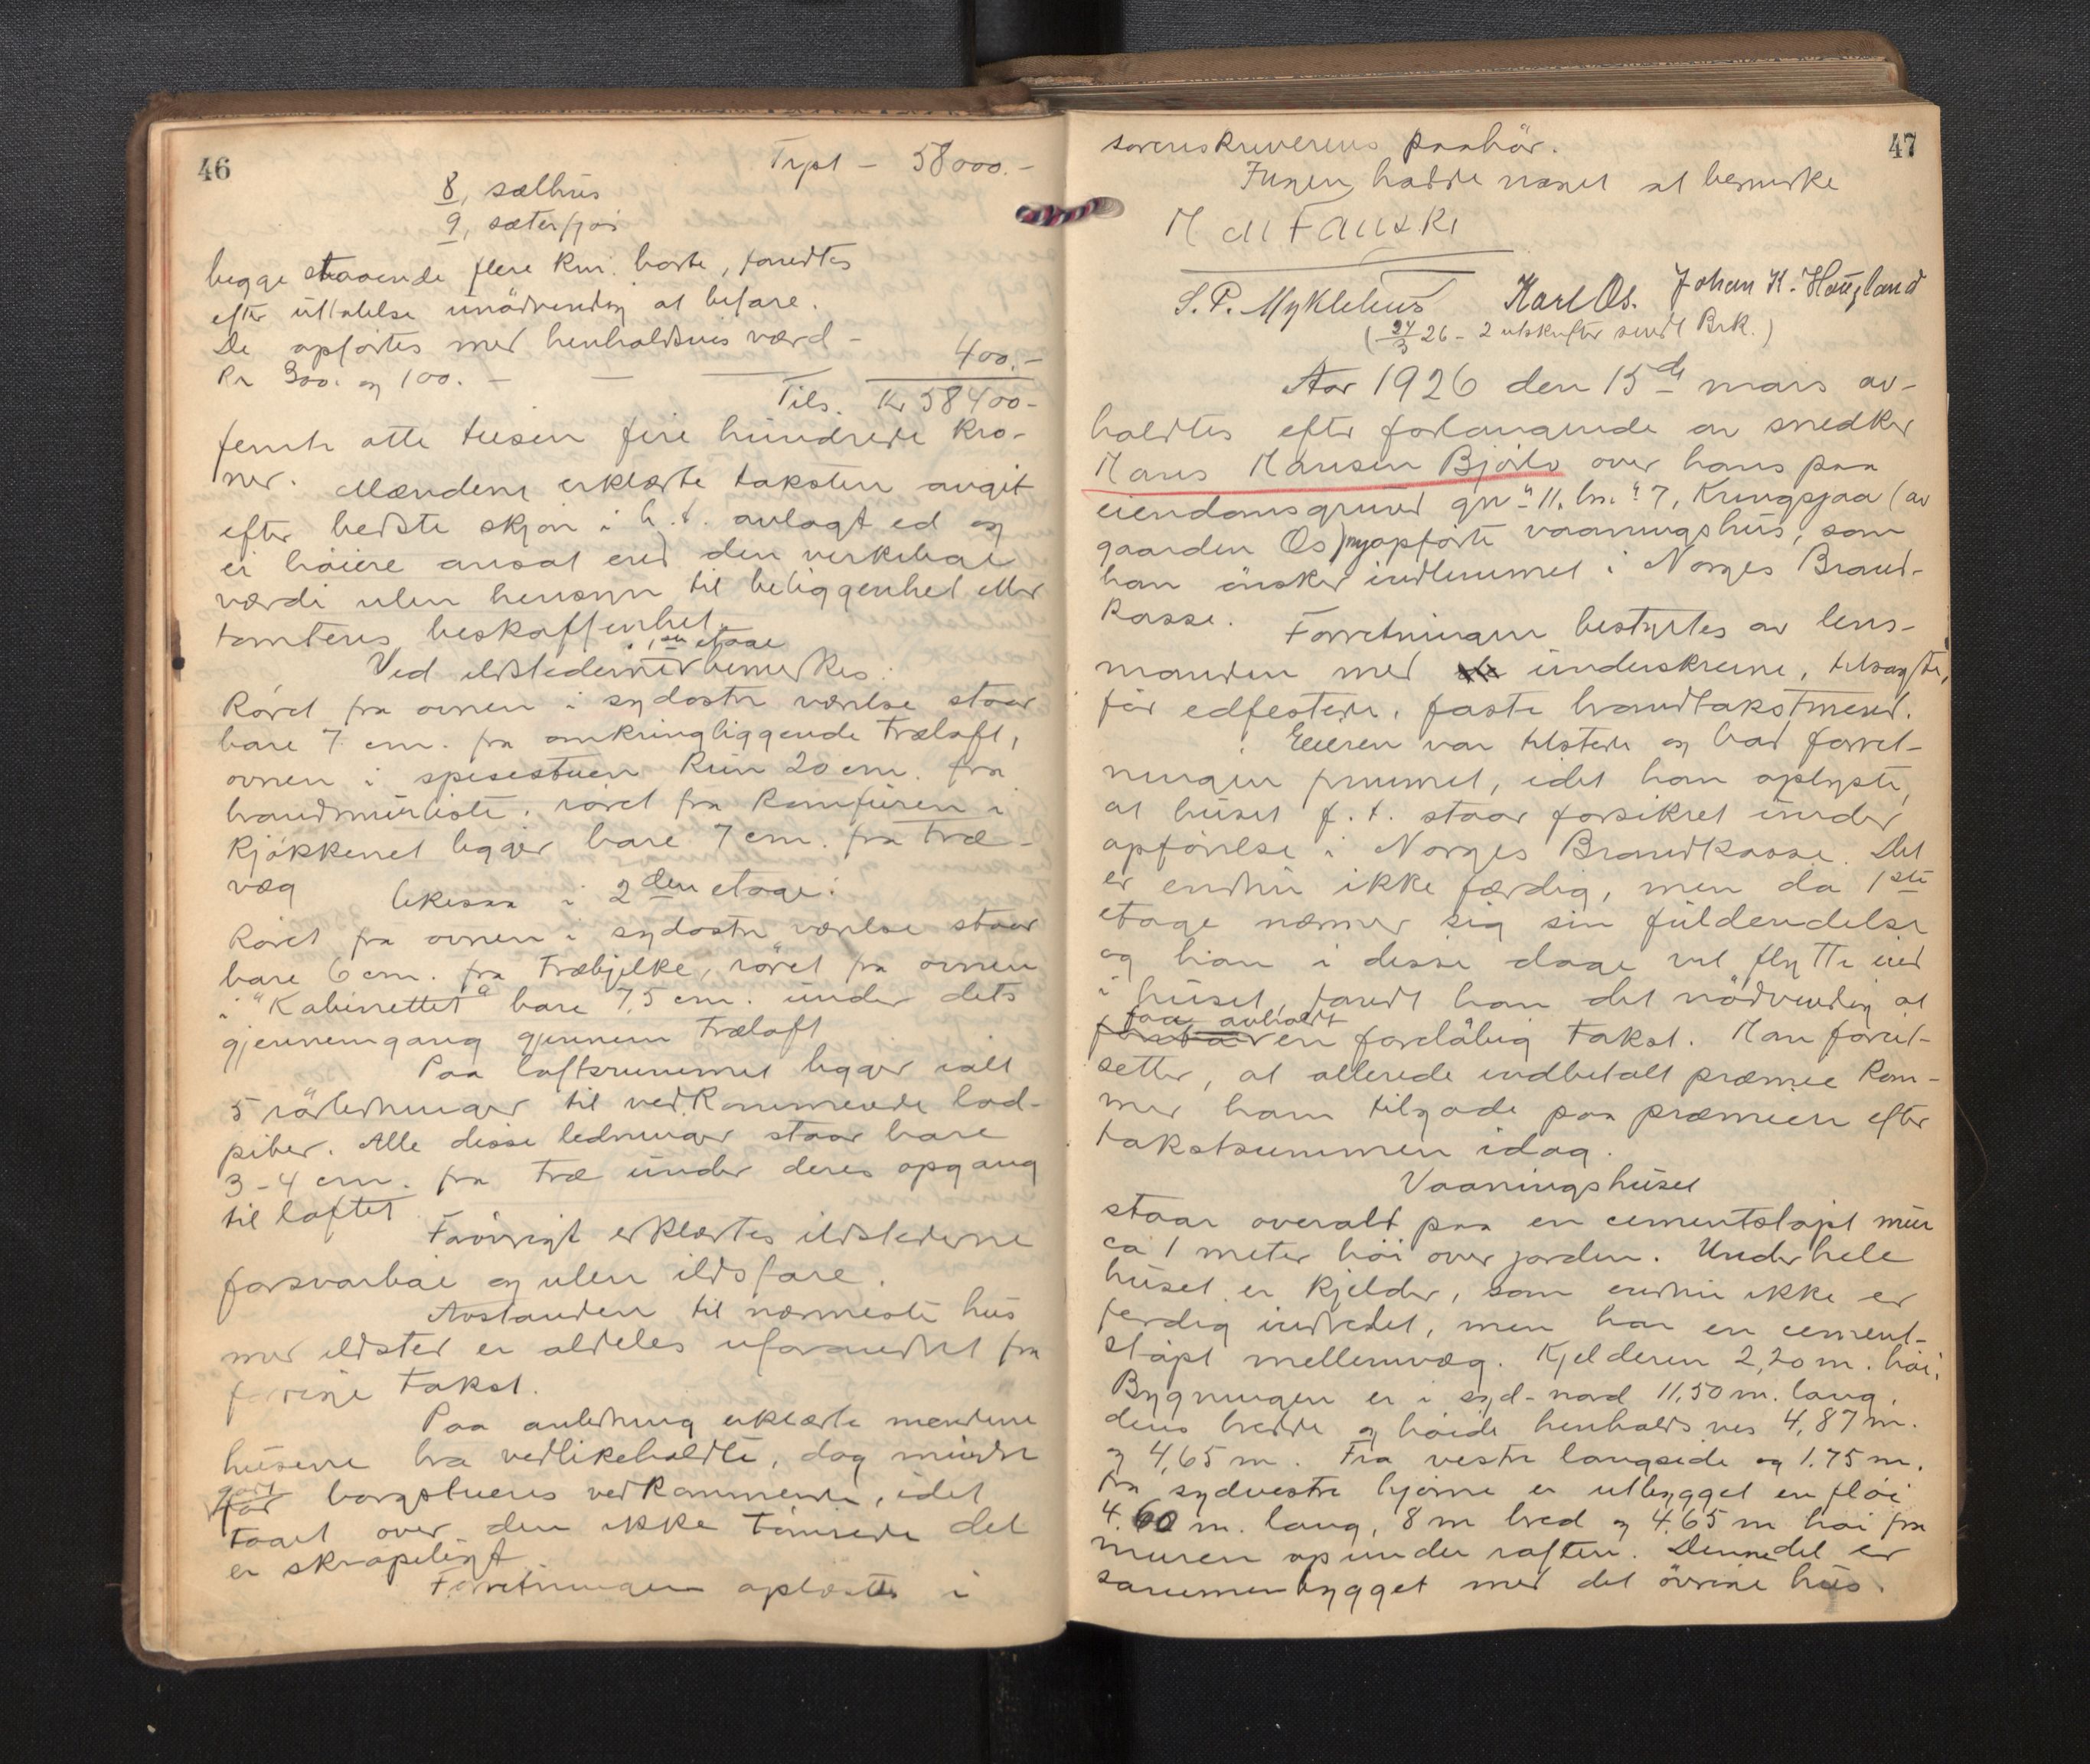 46
Trpt - 58000.-
8, sælhus
9, sæterfjøs
begge staaende flere km. borte, fandtes
efter uttalelse unödvendig at befare.
De opførtes med henholdsvis værd -
Kr 300. og 100. - — — 400.-
Tils. Kr 58400-
femti otte tusen fire hundrede kro-
ner. Mændene erklærte taksten avgit
efter bedste skjøn i h. t. avlagt ed og
ei höiere ansat end den virkelige
værdi uten hensyn til beliggenhet eller
tomtens beskaffenhet.
Ved ildstederne i 1ste etage bemerkes:
Röret fra ovnen i sydostre værelse staar
bare 7 cm. fra omkringliggende træloft,
ovnen i spisestuen kun 20 cm. fra
brandmurliste. röret fra komfuren i
kjøkkenet ligger bare 7 cm. fra træ-
væg likesaa i 2den etage:
Röret fra ovnen i sydostre værelse staar
bare 6 cm. fra træbjelke, röret fra ovnen
i "Kabinettet" bare 7,5 cm. under dets
gjennemgang gjennem træloft
Paa loftsrummet ligger ialt
5 rörledninger til vedkommende lod-
piber. Alle disse ledninger staar bare
3-4 cm. fra træ under deres opgang
til loftet
Forövrigt erklærtes ildstederne
forsvarlige og uten ildsfare.
Avstanden til nærmeste hus
med ildsted er aldeles uforandret fra
forrige takst.
Paa anledning erklærte mændene
husene bra vedlikeholdte, dog mindre
godt for borgstuens vedkommende, idet
taket over den ikke tömrede del
er skrøpeligt.
Forretningen oplæstes i
47
sorenskriverens paahör.
Ingen hadde noget at bemerke
N dli Fauske
S. P. Myklebust Karl Os. Johan K. Haugland
(24/3 26 - 2 utskrifter sendt Brk.)
Aar 1926 den 15de mars av-
holdtes efter forlangende av snedker
Hans Hansen Bjørlo over hans paa
eiendomsgrund gn. 11, bn. 7, Kringsjaa (av
gaarden Os) nyopførte vaaningshus, som
han önsker indlemmet i Norges Brand-
kasse. Forretningen bestyrtes av lens-
manden med underskrevne, tilsagte,
för edfestede, faste brandtakstmænd.
Eieren var tilstede og bad forret-
ningen fremmet, idet han oplyste,
at huset f. t. staar forsikret under
opförelse i Norges Brandkasse. Det
er endnu ikke færdig, men da 1ste
etage nærmer sig sin fuldendelse
og han i disse dage vil flytte ind
i huset, fandt han det nödvendig at
faa avholdt en foreløbig takst. Han forut-
setter, at allerede indbetalt præmie kom-
mer ham tilgode paa præmien efter
takstsummen idag.
Vaaningshuset
staar overalt paa en cementstøpt mur
ca 1 meter höi over jorden. Under hele
huset er kjelder, som endnu ikke er
ferdig indredet, men har en cement-
støpt mellemvæg. Kjelderen 2,20 m. höi.
Bygningen er i syd-nord 11,50 m. lang,
dens bredde og höide henholdsvis 4,87 m.
og 4,65 m. Fra vestre langside og 1.75 m.
fra sydvestre hjørne er utbygget en flöi
4.60 m. lang, 8 m bred og 4,65 m höi fra
muren op under raften. Denne del er
sammenbygget med det övrige hus.